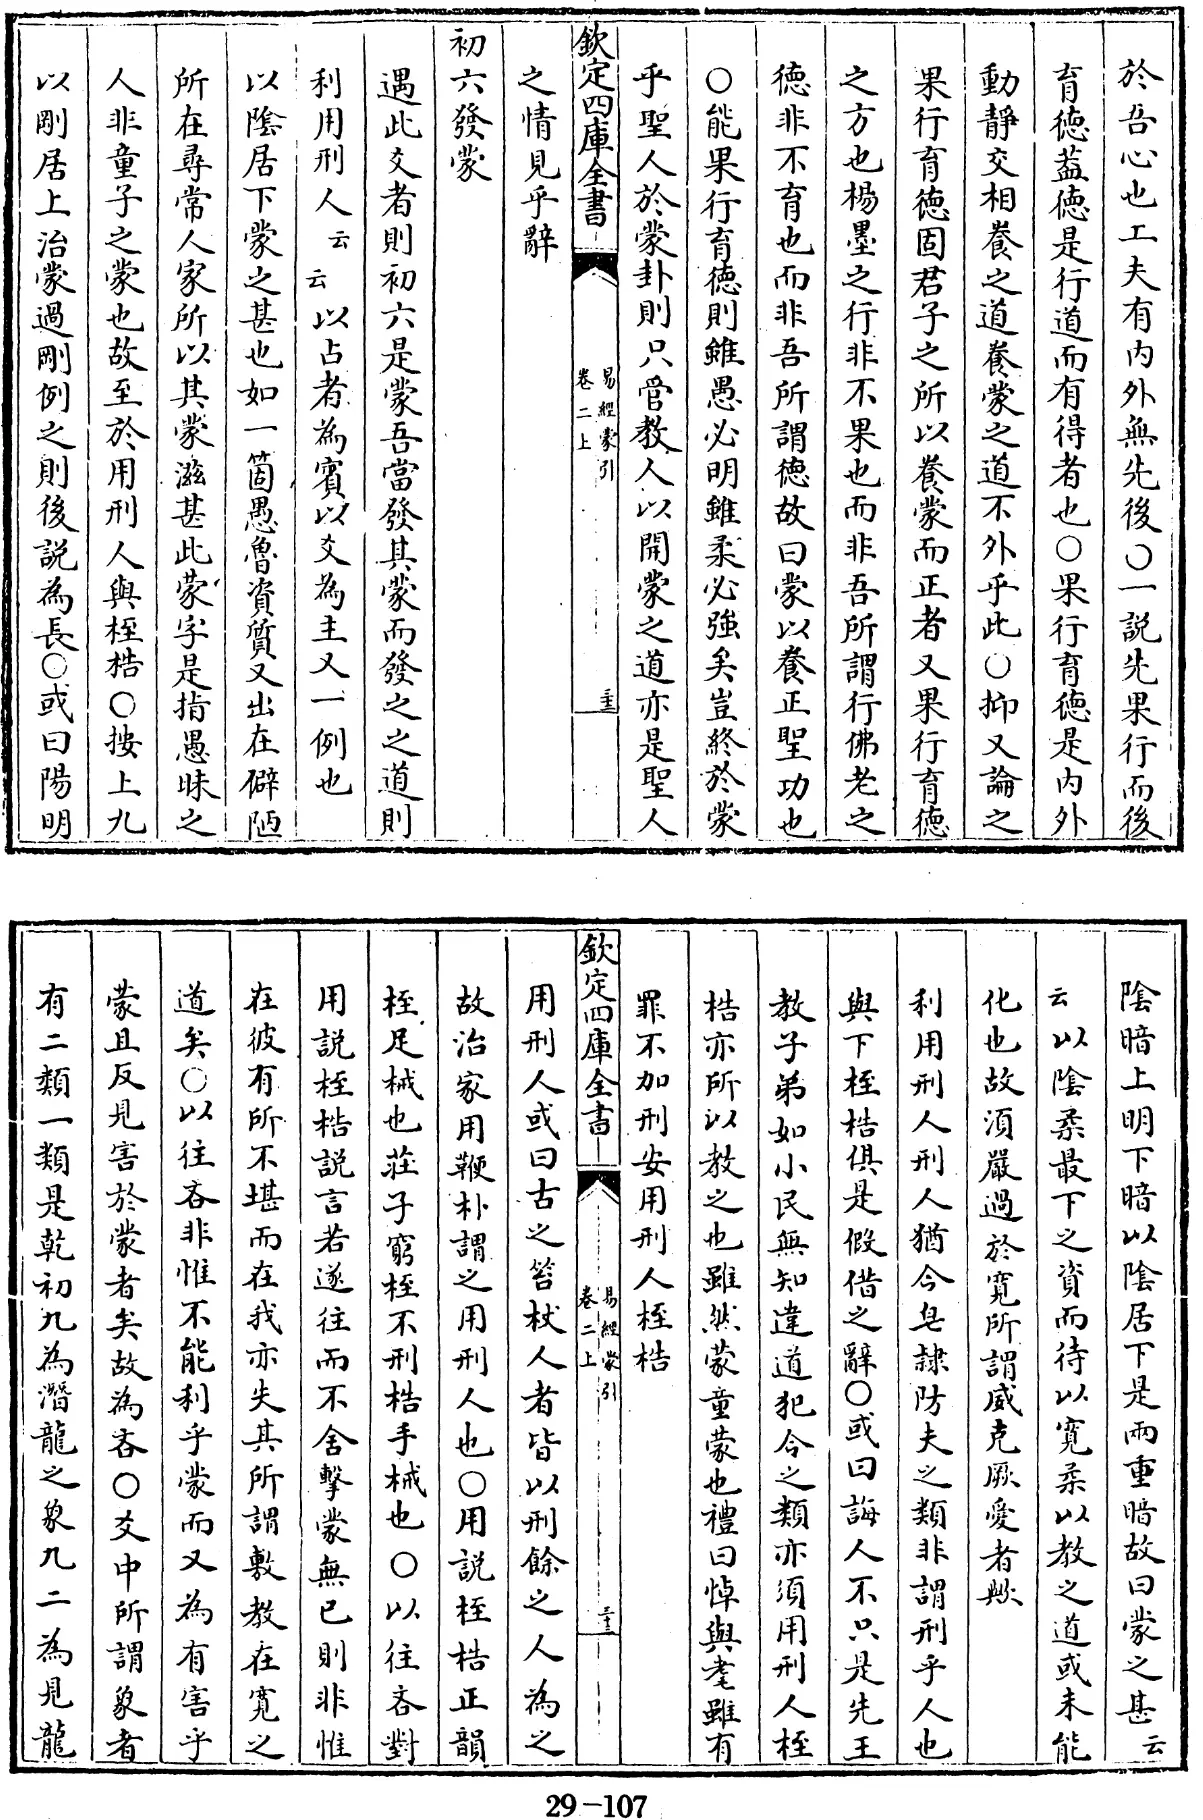 於吾心也工夫有内外無先後○一説先果行而後
育徳葢徳是行道而有得者也○果行育徳是内外
動靜交相養之道養蒙之道不外乎此○抑又論之
果行育徳固君子之所以養蒙而正者又果行育徳
之方也楊墨之行非不果也而非吾所謂行佛老之
徳非不育也而非吾所謂徳故曰蒙以養正聖功也
○能果行育徳則雖愚必明雖柔必強矣豈終於蒙
乎聖人於蒙卦則只管教人以開蒙之道亦是聖人
欽定四庫全書
易經蒙引
卷二上
之情見乎辭
初六發蒙
遇此爻者則初六是蒙吾當發其蒙而發之之道則
利用刑人云云以占者為賓以爻為主又一例也
以隂居下蒙之甚也如一箇愚魯資質又出在僻陋
所在尋常人家所以其蒙滋甚此蒙字是指愚昧之
人非童子之蒙也故至於用刑人與桎梏○按上九
以剛居上治蒙過剛例之則後説為長○或曰陽明
隂暗上明下暗以隂居下是兩重暗故曰蒙之甚云
云以隂柔最下之資而待以寛柔以教之道或未能
化也故湏嚴過於寛所謂威克厥愛者歟
利用刑人刑人猶今皂隸防夫之類非謂刑乎人也
與下桎梏俱是假借之辭○或曰誨人不只是先王
教子弟如小民無知違道犯令之類亦須用刑人桎
梏亦所以教之也雖然蒙童蒙也禮曰悼與耄雖有
罪不加刑安用刑人桎梏
欽定四庫全書
易經蒙引
卷二上
用刑人或曰古之笞杖人者皆以刑餘之人為之
故治家用鞭朴謂之用刑人也○用説桎梏正韻
桎足械也莊子窮桎不刑梏手械也○以往吝對
用説桎梏説言若遂往而不舍擊蒙無已則非惟
在彼有所不堪而在我亦失其所謂敷教在寛之
道矣○以往吝非惟不能利乎蒙而又為有害乎
蒙且反見害於蒙者矣故為吝○爻中所謂象者
有二類一類是乾初九為潛龍之象九二為見龍
29-107